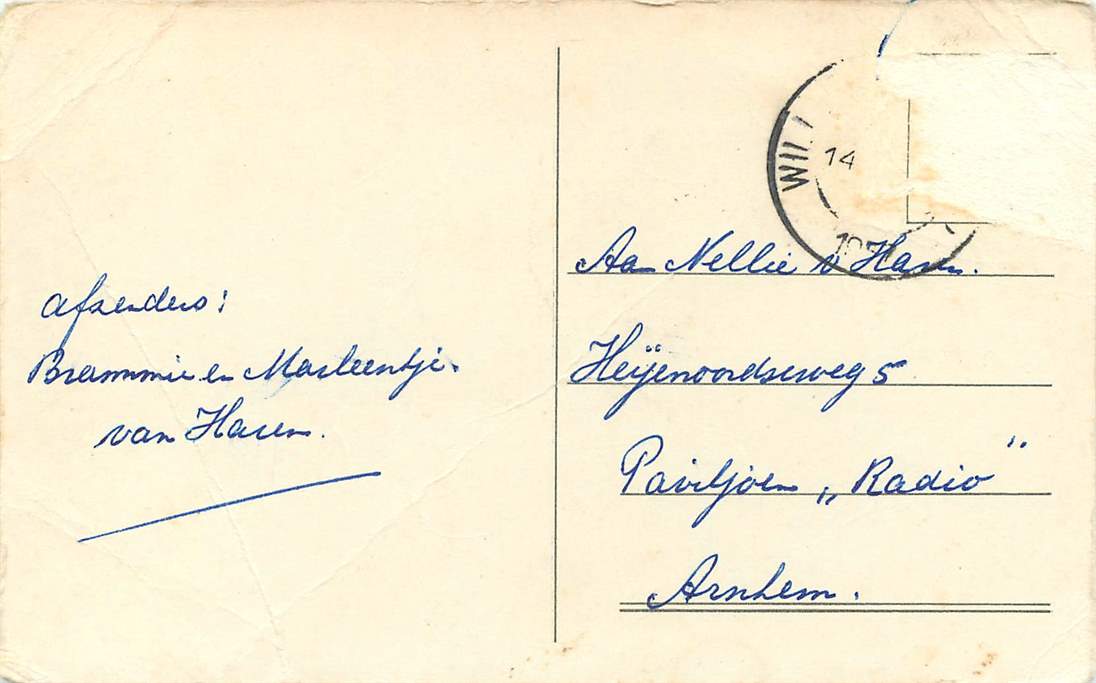 afzenders:
Brammie en Marleentje.
van Haren.
WIL
14
Aan Nellie v Haren.
Heijenoordseweg 5
Paviljoen „Radio”
Arnhem.